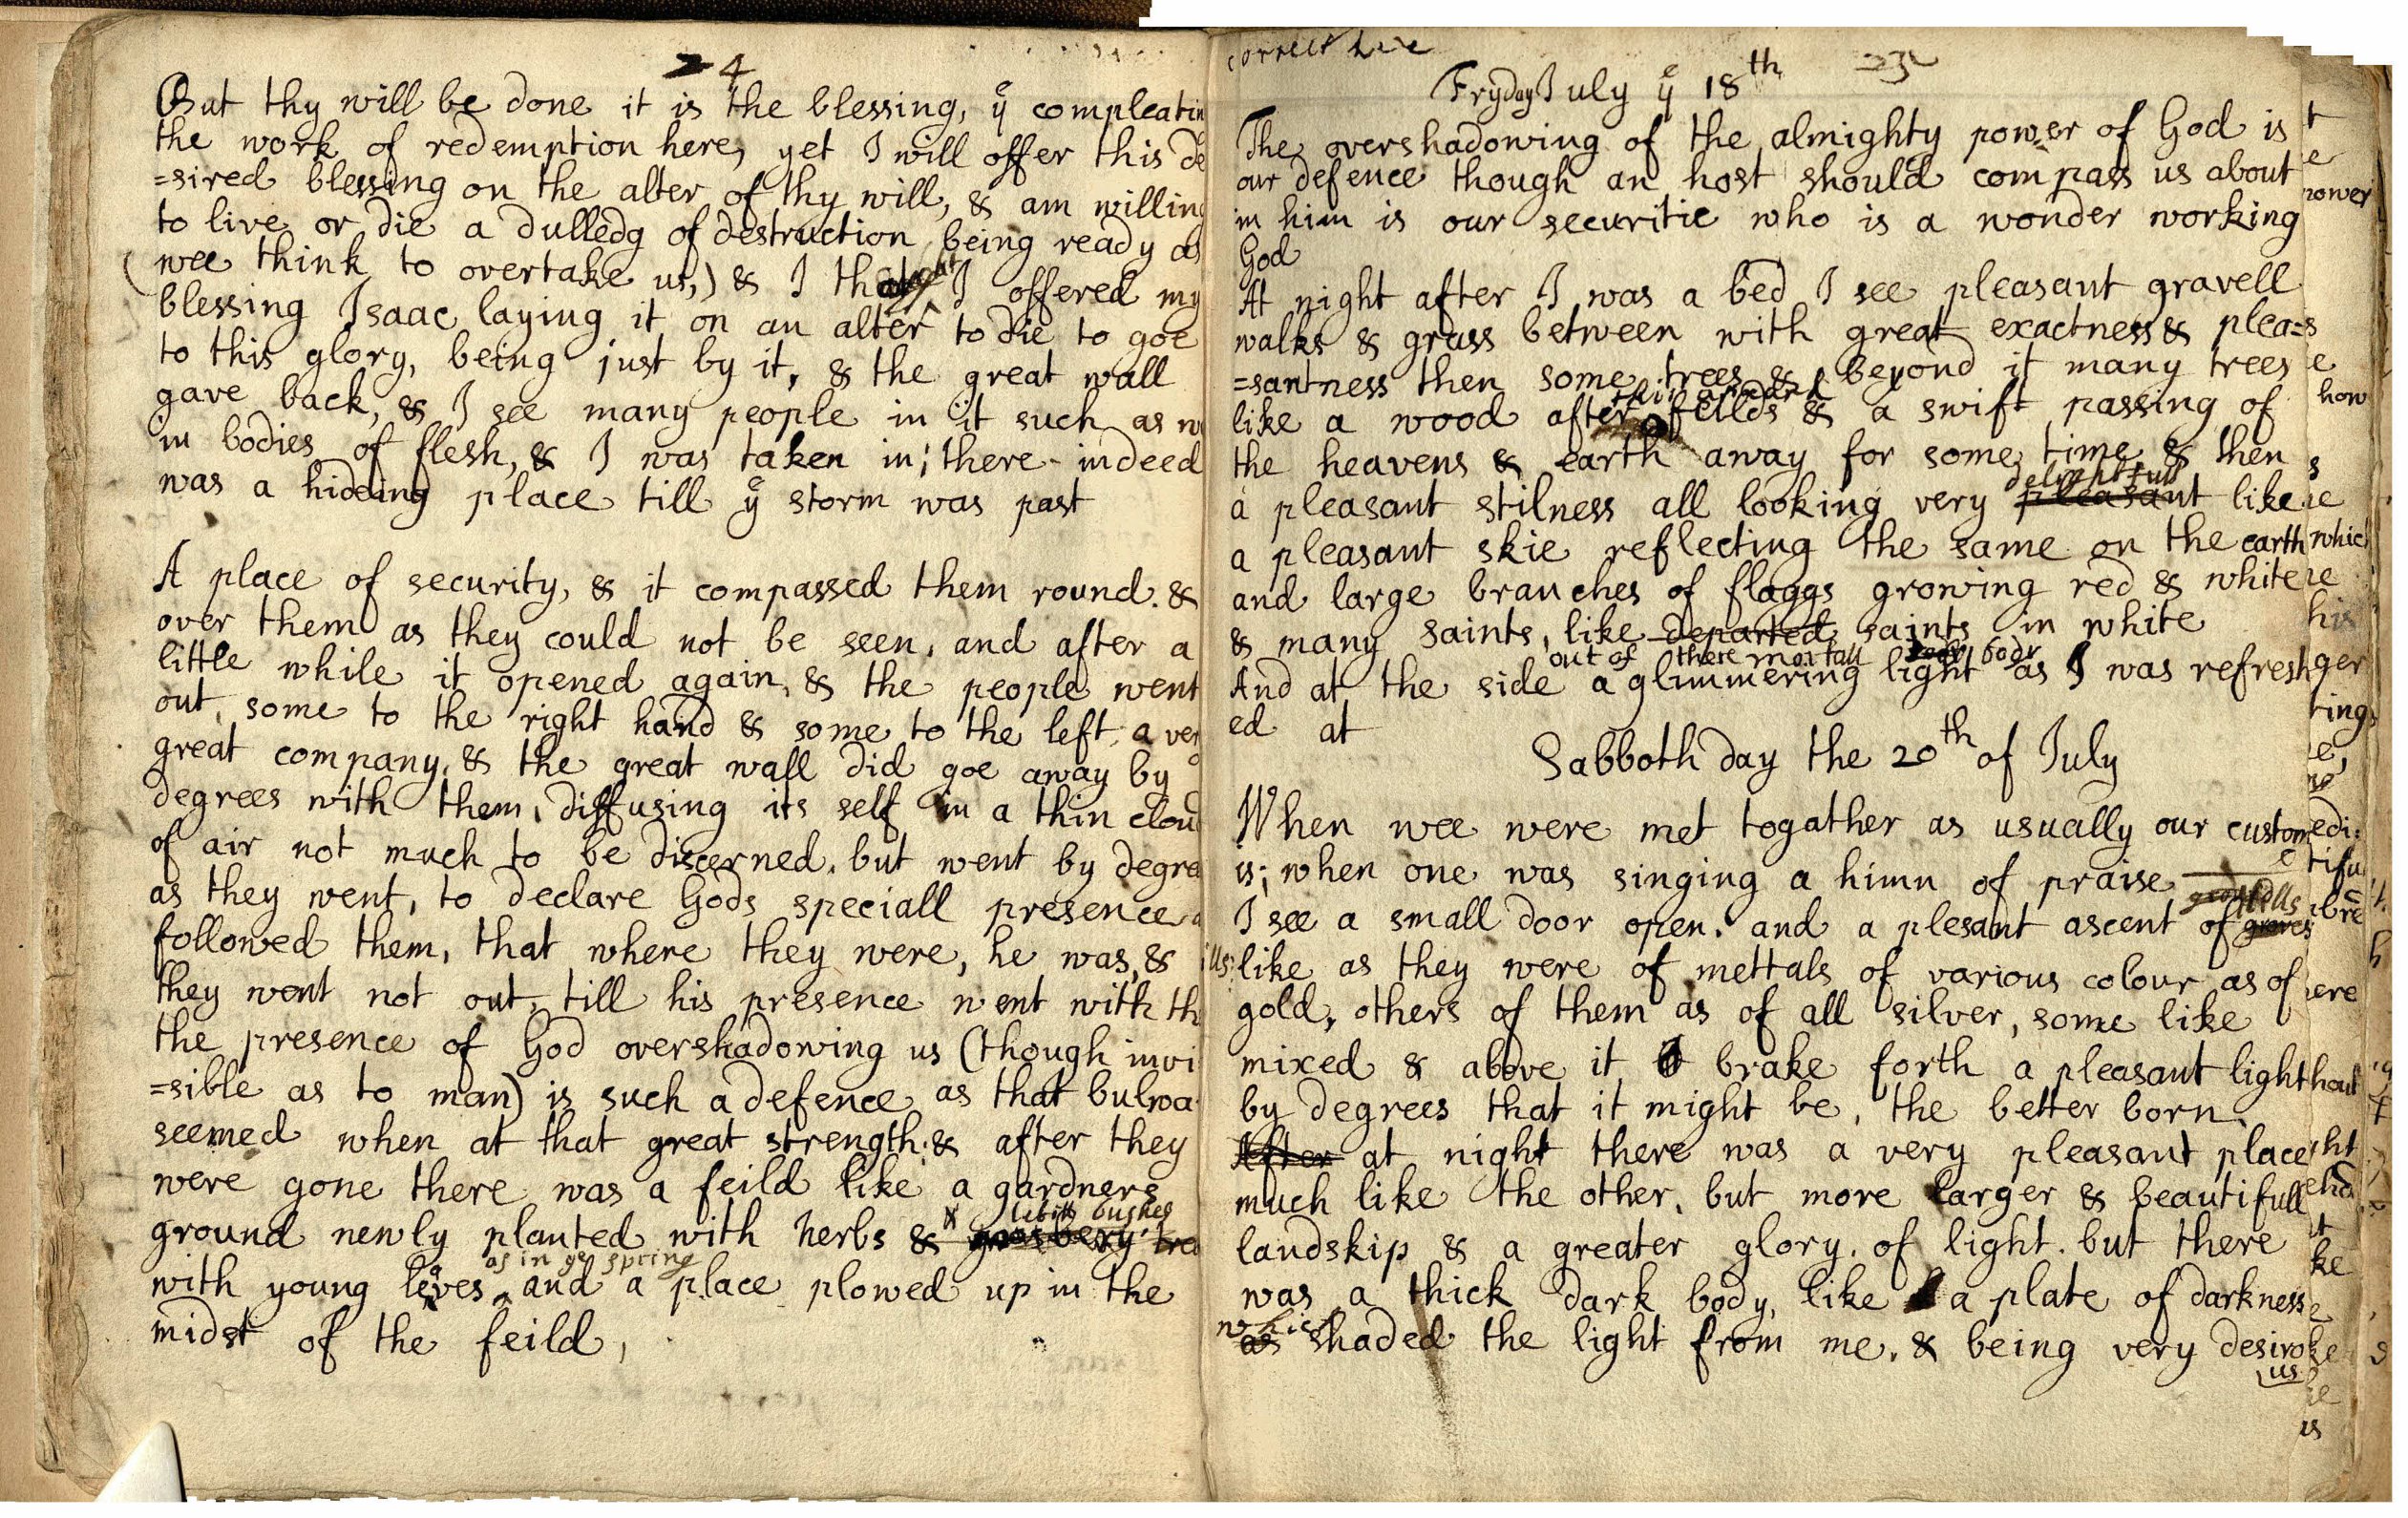 24
But thy will be done it is the blessing, ye compleatin
the work of redemption here, yet I will offer this de
=sired blessing on the alter of thy will, & am willing
to live or die a dulledg of destruction being ready as
(wee think to overtake us,) & I I offered my
blessing Isaac laying it on an alter to die to goe
to this glory, being just by it, & the great wall
gave back, & I see many people in it such as w
in bodies of flesh, & I was taken in; there indeed
was a hideing place till ye storm was past
A place of security, & it compassed them round. &
over them as they could not be seen, and after a
little while it opened again, & the people went
out, some to the right hand & some to the left, a ver
great company, & the great wall did goe away by
degrees with them, diffusing its self in a thin clou
of air not much to be discerned, but went by degre
as they went, to declare Gods speciall presence
followed them, that where they were, he was, &
they went not out, till his presence went with th
the presence of God overshadowing us (though invi
=sible as to man) is such a defence as that bulwa
seemed when at that great strength. & after they
were gone there was a feild like a gardners
ground newly planted with herbs & goosbery tre
bushes
with young leaves as in ye spring and a place plowed up in the
midst of the feild,
correct
Fryday July ye 18th
The overshadowing of the almighty power of God is
our defence though an host should compass us about
in him is our securitie who is a wonder working
God
At night after I was a bed I see pleasant gravell
walks & grass between with great exactness & plea=
=santness then some trees & beyond it many trees
like a wood after feilds & a swift passing of
the heavens & earth away for some time & then
a pleasant stilness all looking very pleasant delightfull like
a pleasant skie reflecting the same on the earth
and large branches of flaggs growing red & white
& many saints, like departed saints in white
out of there mortall body
And at the side a glimmering light as I was refresh
ed at
Sabboth day the 20th of July
When wee were met togather as usually our custom
is; when one was singing a himn of praise
I see a small door open. and a plesant ascent of
like as they were of mettals of various colour as of
gold, others of them as of all silver, some like
mixed & above it brake forth a pleasant light
by degrees that it might be, the better born.
After at night there was a very pleasant place
much like the other, but more larger & beautifull
landskip & a greater glory. of light. but there
was a thick dark body, like a plate of darkness
as which shaded the light from me. & being very desiro
us